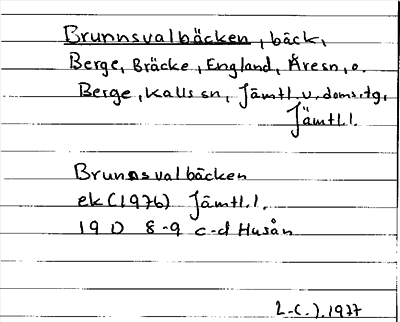 Brunnsvalbäcken, bäck,
Berge, Bräcke, England, Åresn, o.
Berge, Kalls sn, Jämtl. v. doms.tg,
Jämtl.l.
Brunnsvalbäcken
ek (1976) Jämtl.l.
19 D 8-9 c-d Husån
L-C. J. 1977